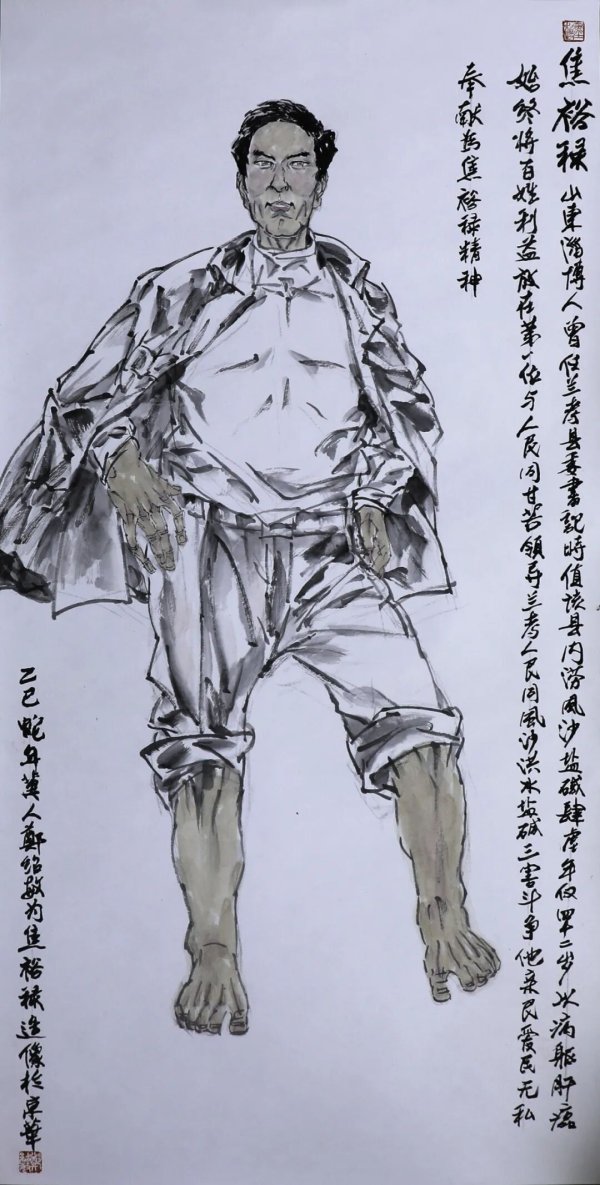 焦裕禄 山东淄博人曾任兰考县委书记时值该县内涝风沙盐碱肆虐年仅四十二岁以病躯肝癌
始终将百姓利益放在第一位与人民同甘苦领导兰考人民同风沙洪水盐碱三害斗争他亲民爱民无私
奉献为焦裕禄精神
乙巳蛇年冀人郑绍敏为焦裕禄造像于京华